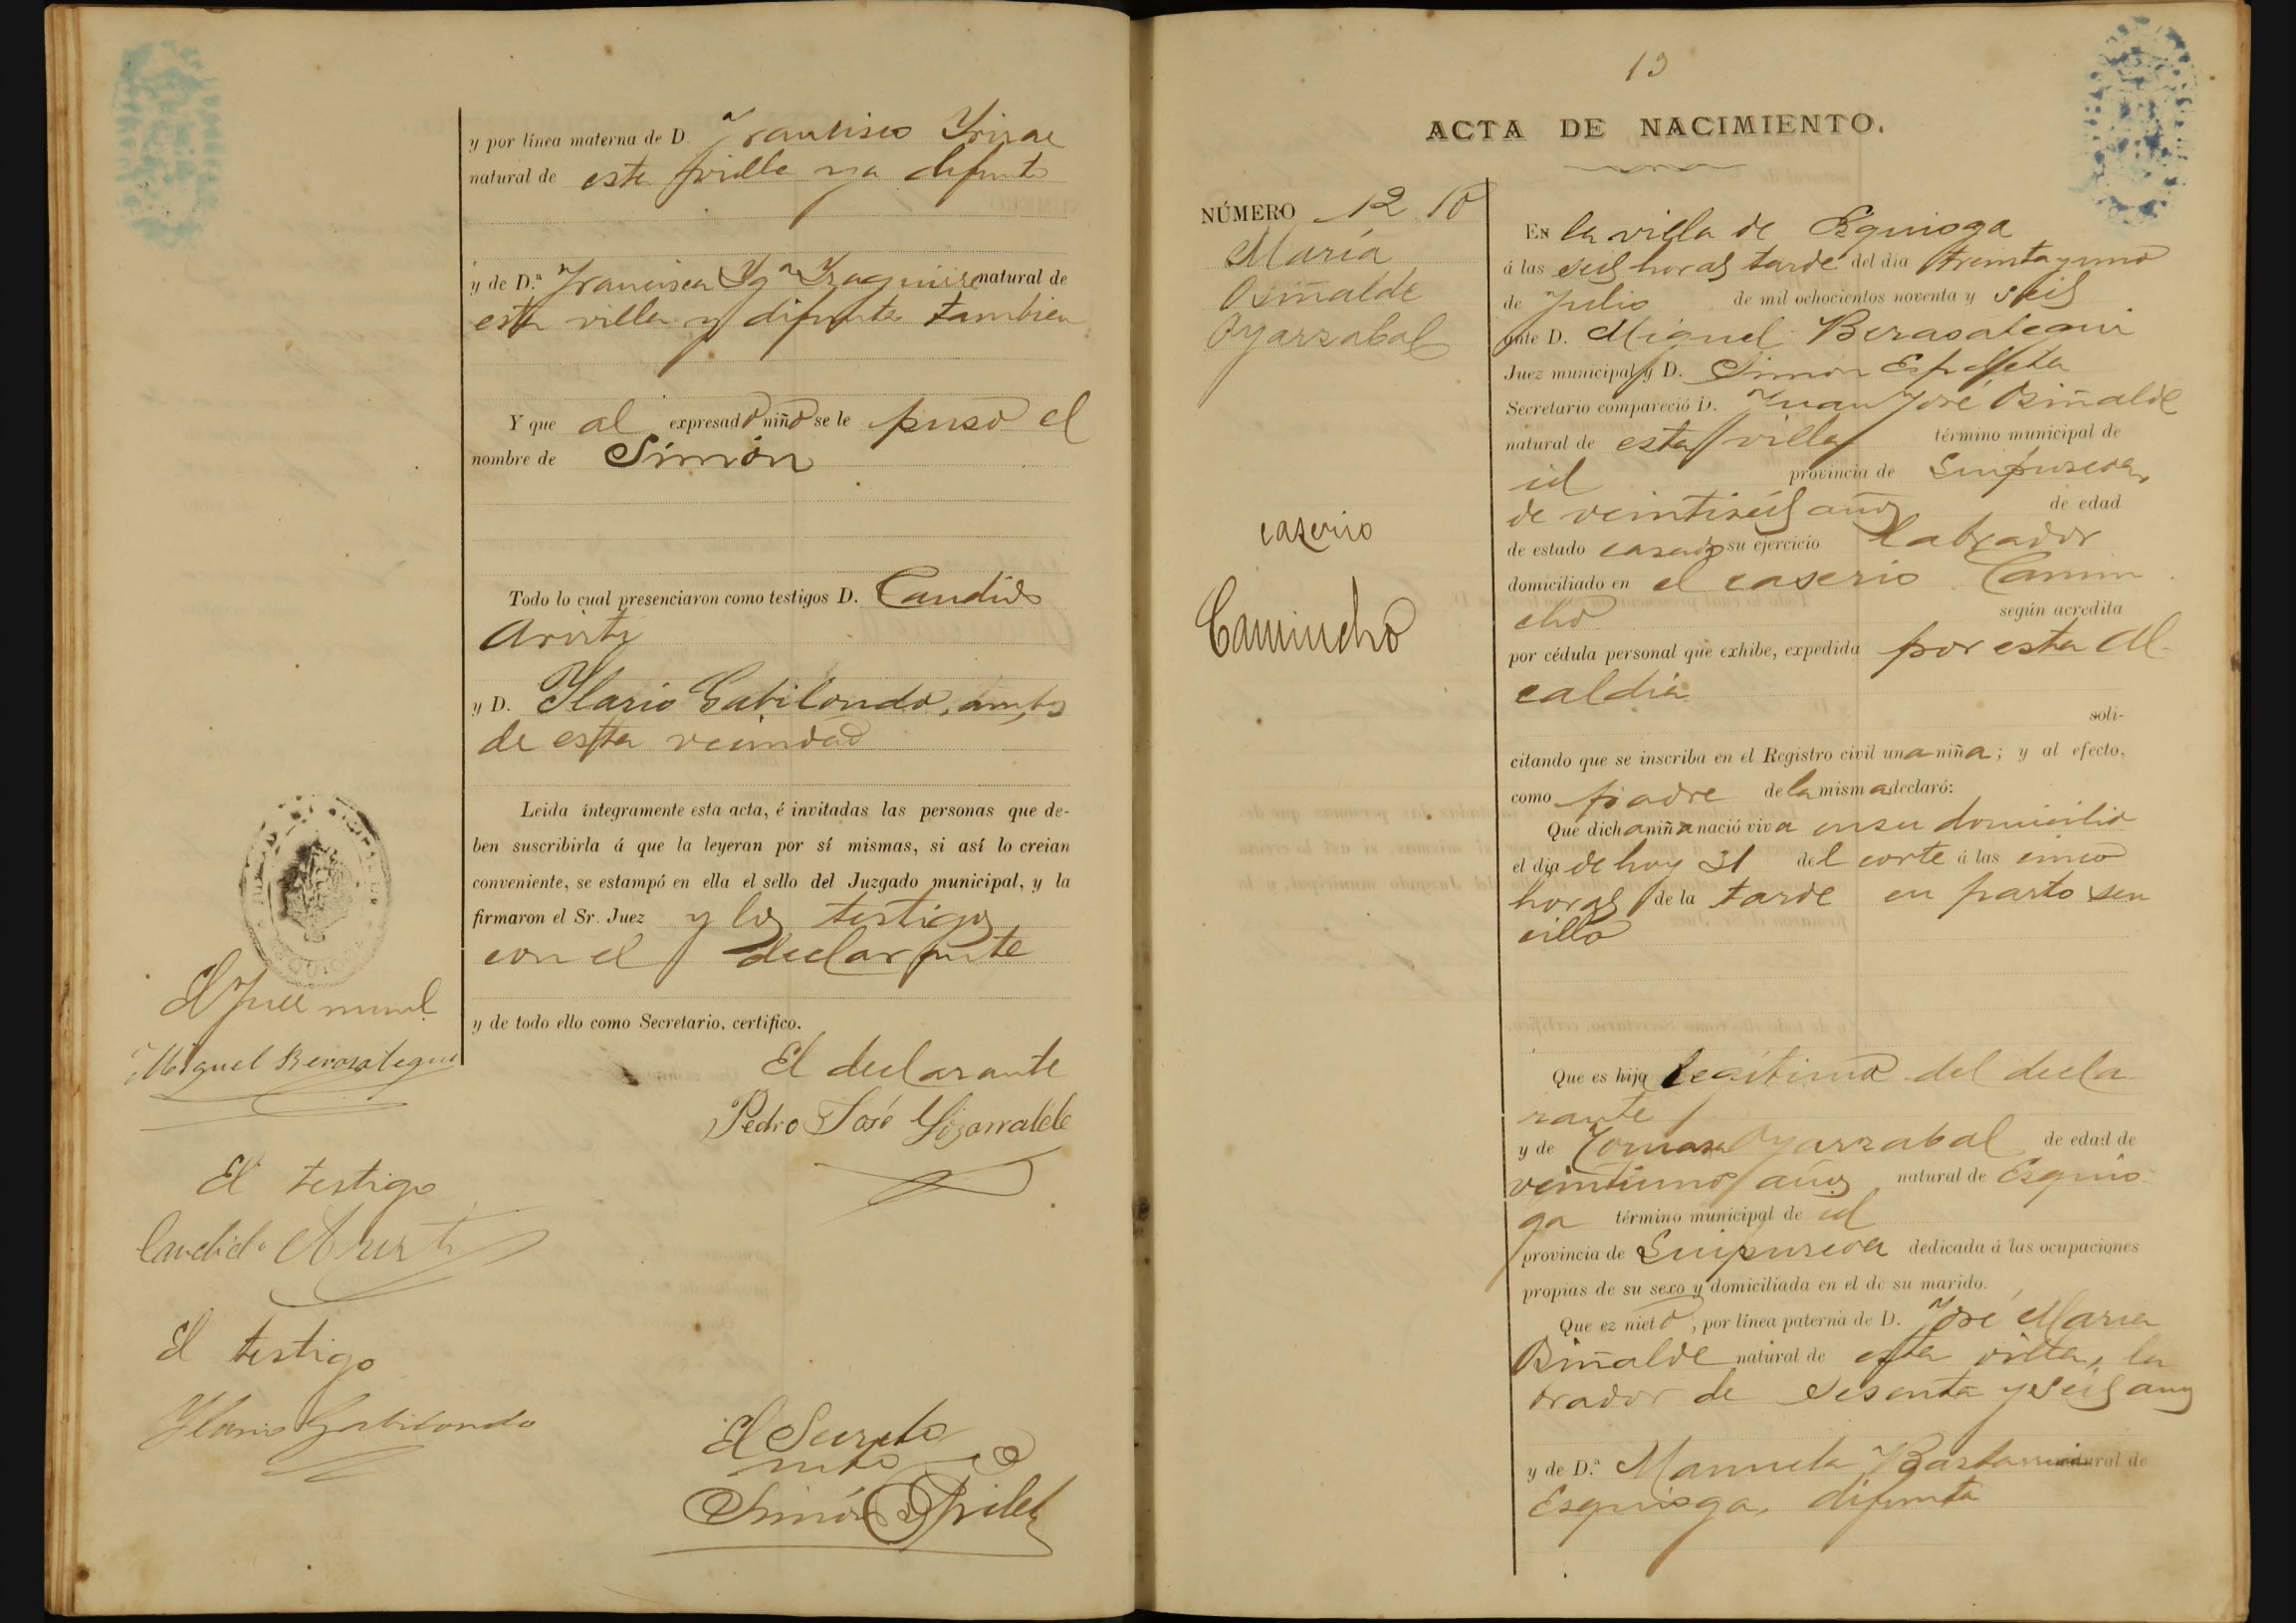 y por línea materna de D. Francisco Yrizar
natural de esta villa ya difunto
y de D.ª Francisca Yg.ª Yzaguirre natural de
esta villa y difunta tambien
Y que al expresado niño se le puso el
nombre de Simón
Todo lo cual presenciaron como testigos D. Candido
Aristi
y D. Ylario Gabilondo, ambos
de esta vecindad
Leida íntegramente esta acta, é invitadas las personas que de-
ben suscribirla á que la leyeran por sí mismas, si así lo creian
conveniente, se estampó en ella el sello del Juzgado municipal, y la
firmaron el Sr. Juez y los testigos
con el declarante
y de todo ello como Secretario, certifico.
El Juez munl
Miguel Berasategui
El declarante
Pedro José Lizarralde
El testigo
Candido Aristi
El testigo
Ylario Gabilondo
El Secreto
Simón
13
ACTA DE NACIMIENTO.
NÚMERO 12 10
María
Osiñalde
Oyarzabal
caserio
Camincho
En la villa de Ezquioga
á las seis horas tarde del dia treinta y uno
de Julio de mil ochocientos noventa y seis
ante D. Miguel Berasategui
Juez municipal y D. Simón Espelleta
Secretario compareció D. Juan José Osiñalde
natural de esta villa término municipal de
id provincia de Guipuzcoa,
de veintiseis años de edad
de estado casado su ejercicio labrador
domiciliado en el caserio Camin
cho según acredita
por cédula personal que exhibe, expedida por esta Al-
caldia
soli-
citando que se inscriba en el Registro civil una niña; y al efecto,
como padre de la misma declaró:
Que dicha niña nació viva en su domicilio
el dia de hoy 31 del corte á las cinco
horas de la tarde en parto sen
cillo
Que es hija legítima del decla
rante
y de Tomasa Oyarzabal de edad de
veintiuno años natural de Esquio
ga término municipal de id
provincia de Guipuzcoa dedicada á las ocupaciones
propias de su sexo y domiciliada en el de su marido.
Que ez nieto, por línea paterna de D. José Maria
Osiñalde natural de esta villa, la
brador de sesenta y seis años
y de D.ª Manuela Bastarrica natural de
Esquioga, difunta